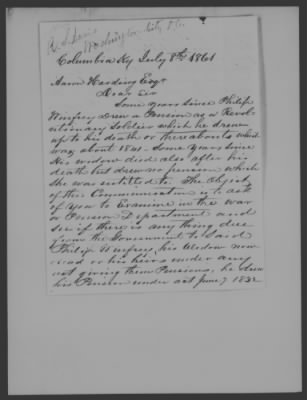 Washington City D.C.
Columbia Ky July 8th 1861
Aaron Harding Esqr
Dear Sir
Some years since Philip
Winfrey drew a Pension as a Revol-
utionary Soldier which he drew
up to his death or thereabouts which
was about 1840. Some years since
His widow died also after his
death but drew no pension which
she was entitled to. The Object
of this Communication is to ask
of you to Examine in the war
or Pension Department and
see if there is any thing due
from the Government to Said
Philip Winfrey, his Widow now
dead or his heirs under any
act giving them Pensions, he drew
his Pension under act June 7 1832